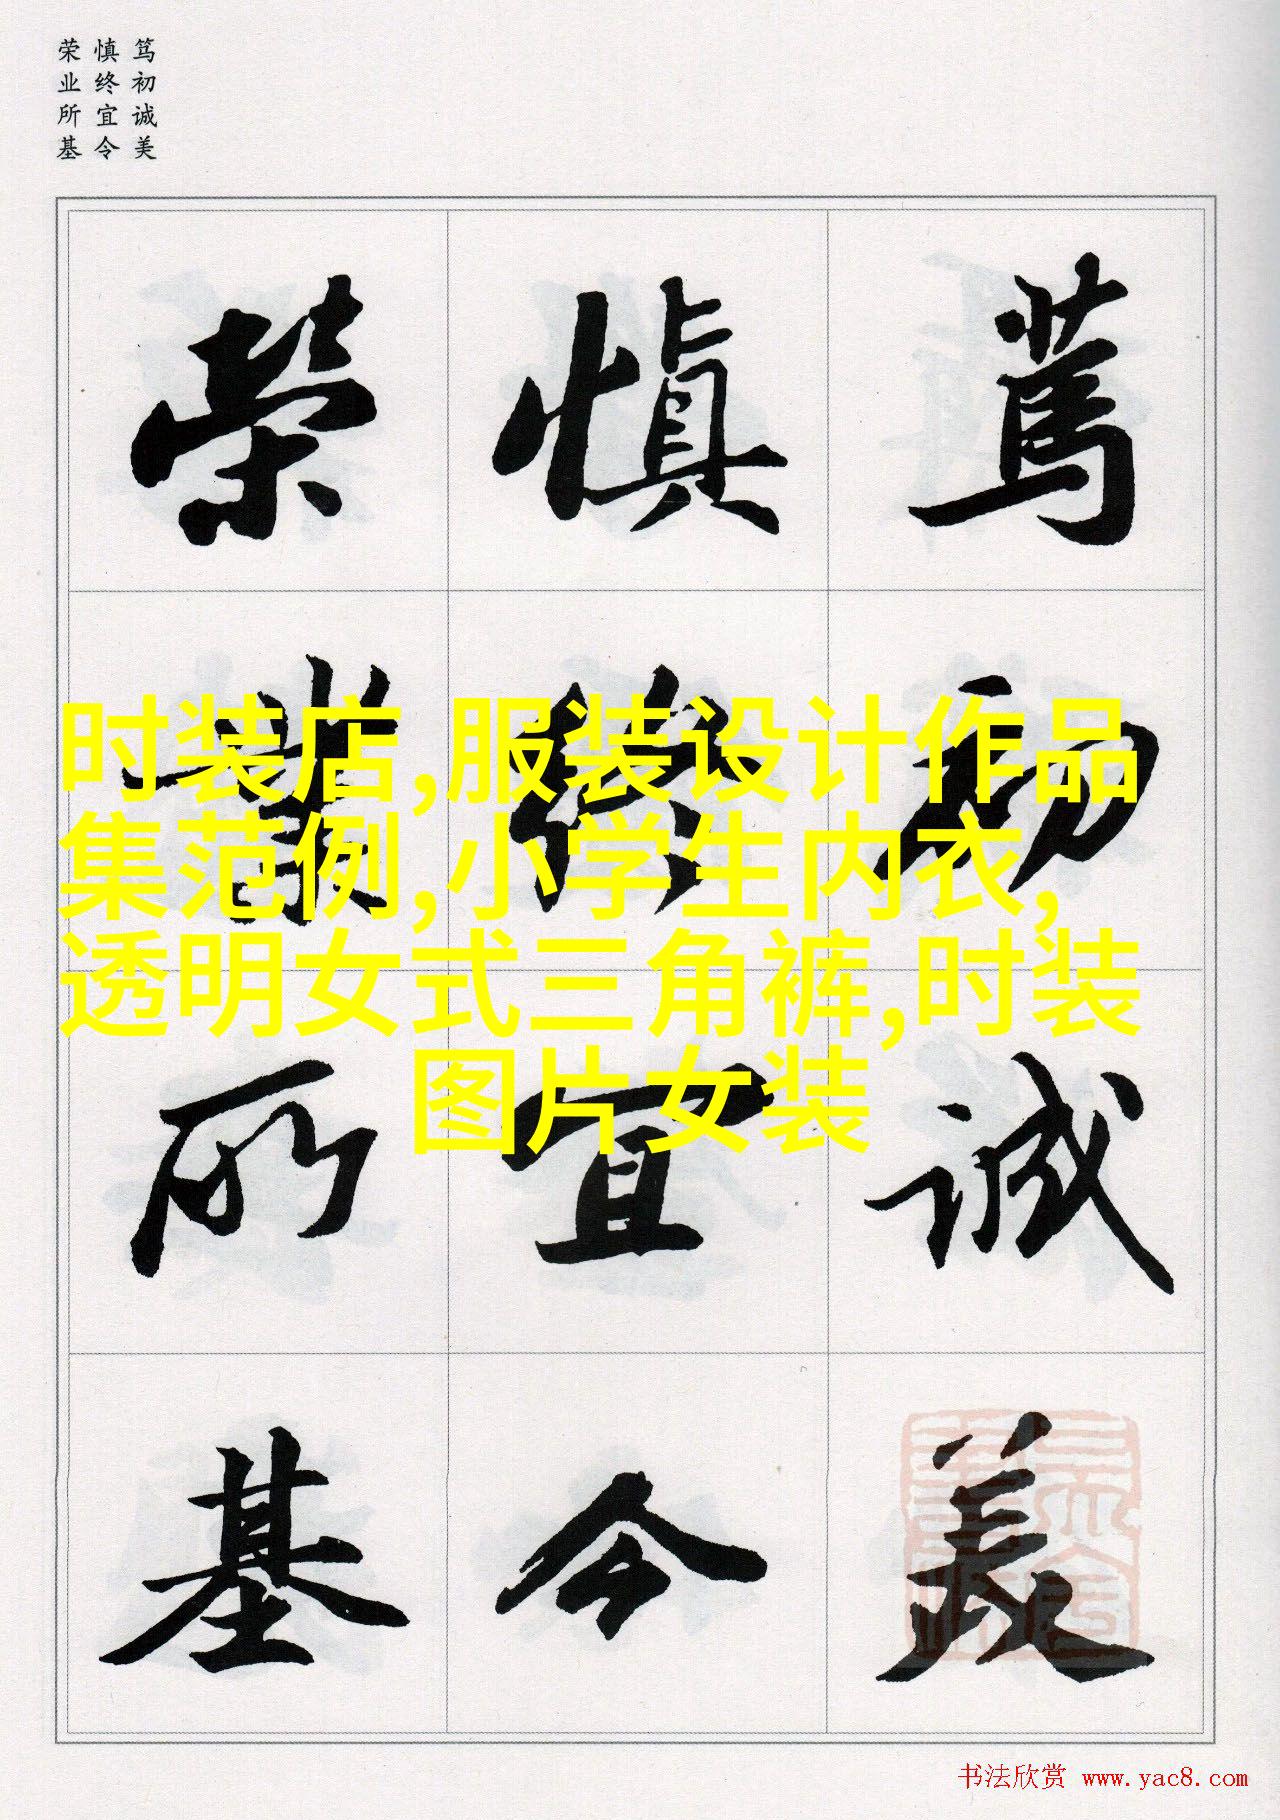 笃初诚美
慎终宜令
荣业所基
笃初诚美
慎终宜令
荣业所基
时装店,服装设计作品
集范例,小学生内衣,
透明女式三角裤,时装
图片女装
书法欣赏 www.yac8.com